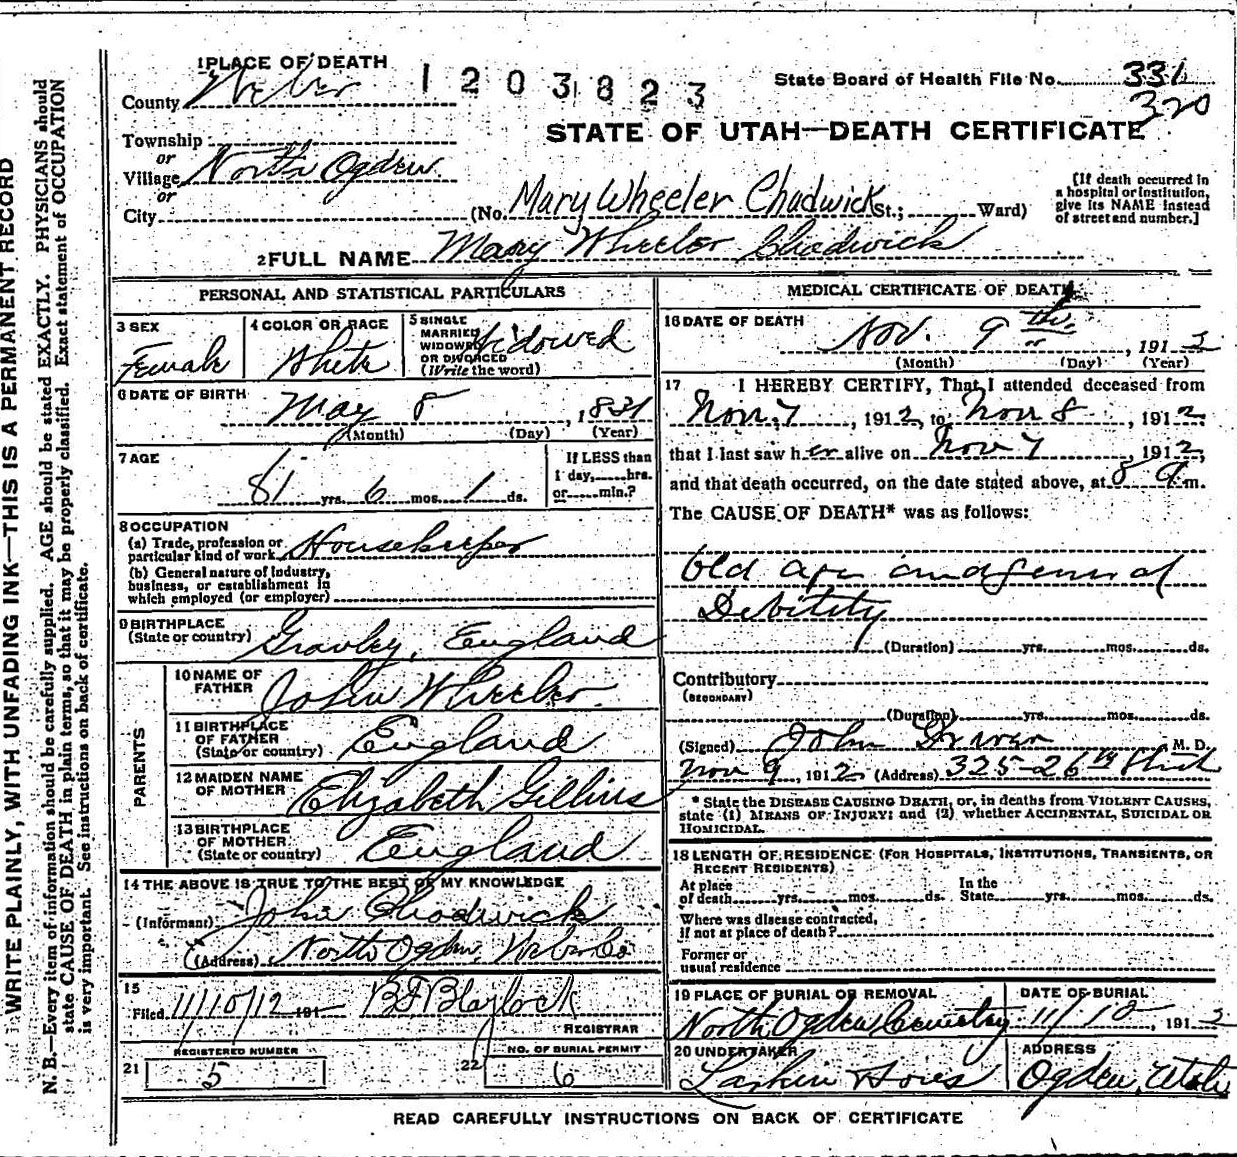 WRITE PLAINLY, WITH UNFADING INK—THIS IS A PERMANENT RECORD
N. B.—Every item of information should be carefully supplied. AGE should be stated EXACTLY. PHYSICIANS should
state CAUSE OF DEATH in plain terms, so that it may be properly classified. Exact statement of OCCUPATION
is very important. See instructions on back of certificate.
1 PLACE OF DEATH
1203823
State Board of Health File No. 331
320
County Weber
STATE OF UTAH—DEATH CERTIFICATE
Township
or
Village North Ogden
or
City (No. Mary Wheeler Chadwick St.; Ward)
[If death occurred in
a hospital or institution,
give its NAME instead
of street and number.]
2 FULL NAME Mary Wheeler Chadwick
PERSONAL AND STATISTICAL PARTICULARS
3 SEX
Female
4 COLOR OR RACE
White
5 SINGLE
MARRIED
WIDOWED
OR DIVORCED
(Write the word)
Widowed
6 DATE OF BIRTH
May 8, 1831
(Month) (Day) (Year)
7 AGE
81 yrs. 6 mos. 1 ds.
If LESS than
1 day, hrs.
or min.?
8 OCCUPATION
(a) Trade, profession or
particular kind of work Housekeeper
(b) General nature of industry,
business, or establishment in
which employed (or employer)
9 BIRTHPLACE
(State or country) England
PARENTS
10 NAME OF
FATHER John Wheeler
11 BIRTHPLACE
OF FATHER
(State or country) England
12 MAIDEN NAME
OF MOTHER Elizabeth Gillins
13 BIRTHPLACE
OF MOTHER
(State or country) England
14 THE ABOVE IS TRUE TO THE BEST OF MY KNOWLEDGE
(Informant) John Chadwick
(Address) North Ogden, Weber Co
15
Filed 11/10/12 191 B F Blaylock
REGISTRAR
REGISTERED NUMBER
21 5
NO. OF BURIAL PERMIT
22 6
MEDICAL CERTIFICATE OF DEATH
16 DATE OF DEATH
Nov. 9th, 1912
(Month) (Day) (Year)
17 I HEREBY CERTIFY, That I attended deceased from
Nov. 7, 1912, to Nov 8, 1912,
that I last saw her alive on Nov 7, 1912,
and that death occurred, on the date stated above, at 8 a.m.
The CAUSE OF DEATH* was as follows:
Old age and general
Debility
(Duration) yrs. mos. ds.
Contributory
(SECONDARY)
(Duration) yrs. mos. ds.
(Signed) John Driver M. D.
Nov 9, 1912 (Address) 325-26th Street
* State the DISEASE CAUSING DEATH, or, in deaths from VIOLENT CAUSES,
state (1) MEANS OF INJURY; and (2) whether ACCIDENTAL, SUICIDAL OR
HOMICIDAL.
18 LENGTH OF RESIDENCE (FOR HOSPITALS, INSTITUTIONS, TRANSIENTS, OR
RECENT RESIDENTS)
At place
of death yrs. mos. ds.
In the
State yrs. mos. ds.
Where was disease contracted,
if not at place of death?
Former or
usual residence
19 PLACE OF BURIAL OR REMOVAL
North Ogden Cemetery
DATE OF BURIAL
11/10, 1912
20 UNDERTAKER
Larkin Sons
ADDRESS
Ogden, Utah
READ CAREFULLY INSTRUCTIONS ON BACK OF CERTIFICATE